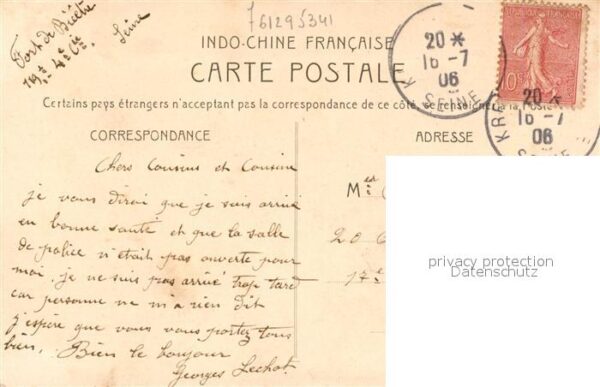 761295341
Fort de Bicêtre
19e 4e Cie
Seine
INDO-CHINE FRANÇAISE
CARTE POSTALE
Certains pays étrangers n'acceptent pas la correspondance de ce côté, se renseigner à la Poste
CORRESPONDANCE
ADRESSE
20 *
16 -7
06
SEINE
10c
20 *
16 -7
06
SEINE
Chers Cousins et Cousine
je vous dirai que je suis arrivé
en bonne santé et que la salle
de police n'était pas ouverte pour
moi. je ne suis pas arrivé trop tard
car personne ne m'a rien dit
j'espère que vous vous portez tous
bien. Bien le bonjour
Georges Lechot.
20
17e
privacy protection
Datenschutz